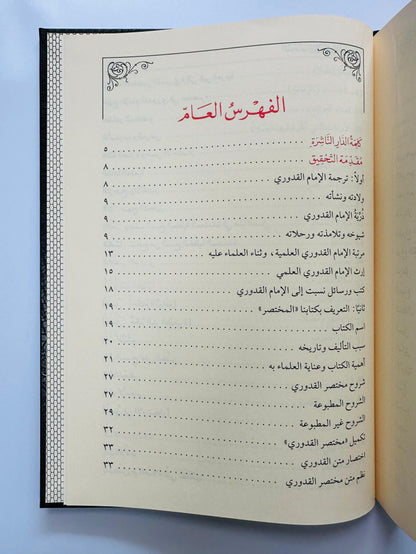 الفهرس العام
كلمة الدار الناشرة ٥
مقدمة التحقيق ٨
أولاً: ترجمة الإمام القدوري ٨
ولادته ونشأته ٩
ذُرِّيَّةُ الإمام القدوري ٩
شيوخه وتلامذته ورحلاته ٩
مرتبة الإمام القدوري العلمية، وثناء العلماء عليه ١٣
إرث الإمام القدوري العلمي ١٥
كتب ورسائل نسبت إلى الإمام القدوري ١٨
ثانيًا: التعريف بكتابنا «المختصر» ١٩
اسم الكتاب ١٩
سبب التأليف وتاريخه ٢٠
أهمية الكتاب وعناية العلماء به ٢١
شروح مختصر القدوري ٢٧
الشروح المطبوعة ٢٧
الشروح غير المطبوعة ٢٩
تكميل «مختصر القدوري» ٣٢
اختصار متن القدوري ٣٣
نظم متن مختصر القدوري ٣٣